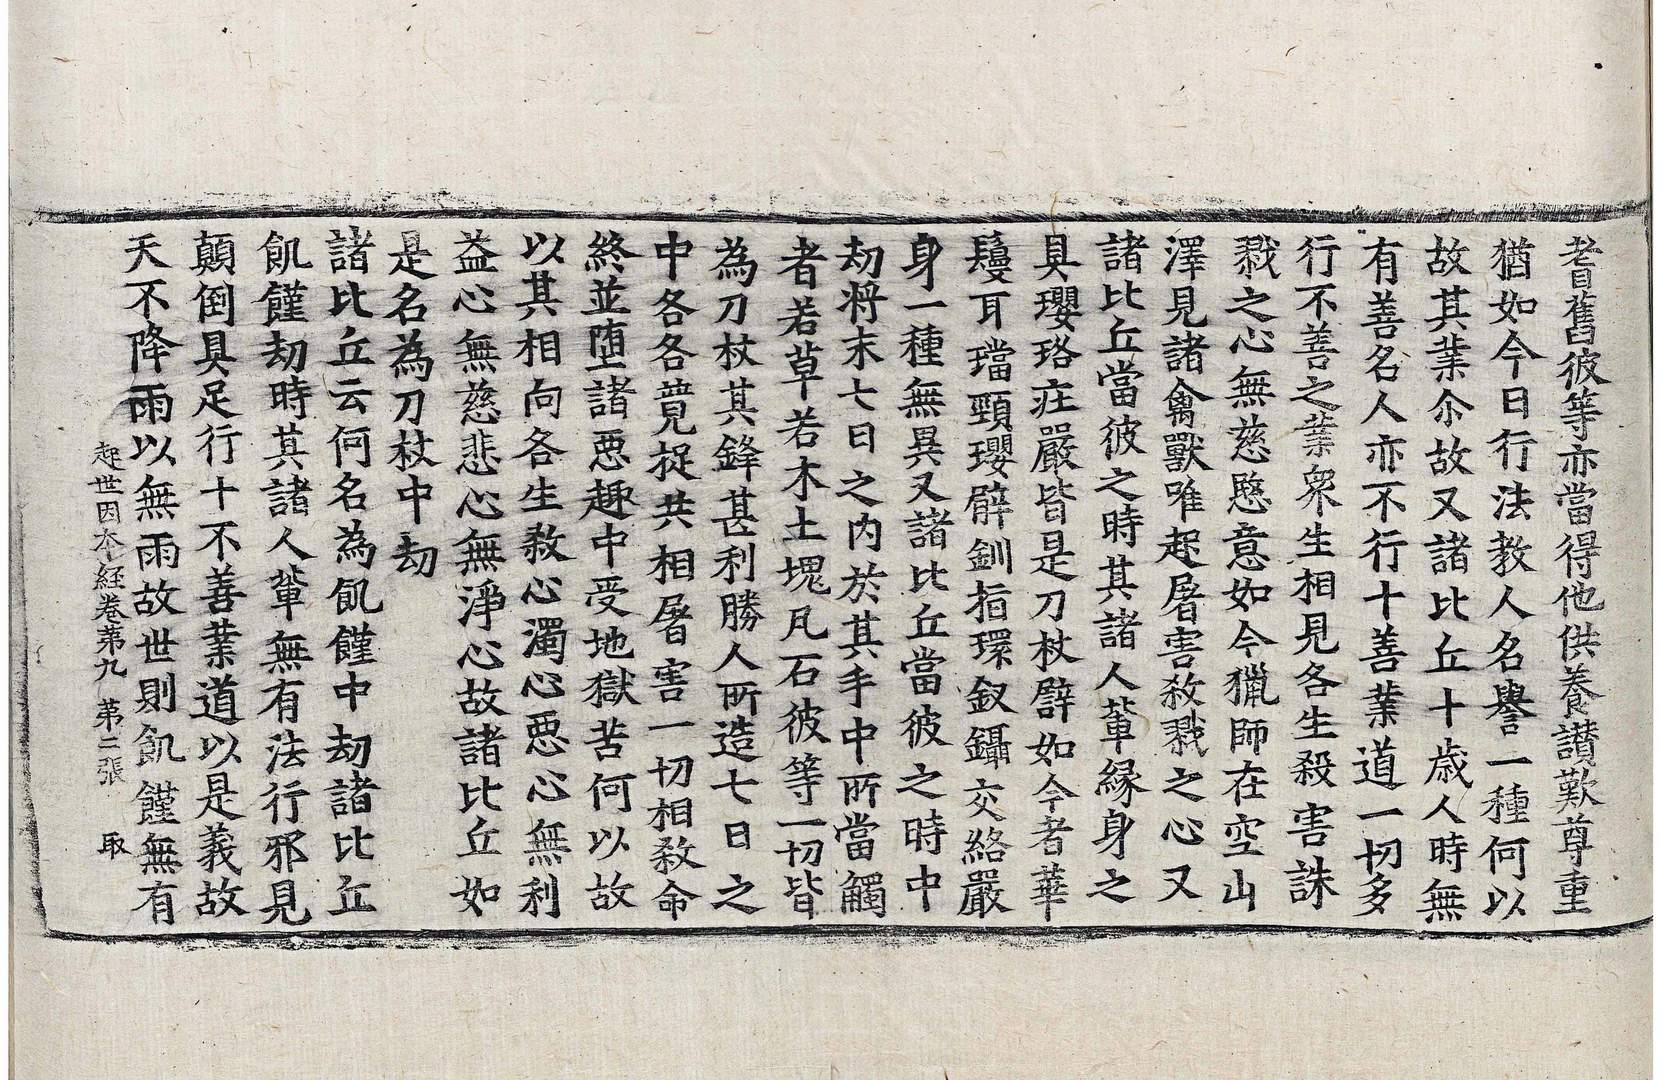 耆舊彼等亦當得他供養讃歎尊重
猶如今日行法教人名譽一種何以
故其業尒故又諸比丘十歲人時無
有善名人亦不行十善業道一切多
行不善之業衆生相見各生殺害誅
戮之心無慈愍意如今獵師在空山
澤見諸禽獸唯起屠害殺戮之心又
諸比丘當彼之時其諸人輩緣身之
具瓔珞庄嚴皆是刀杖譬如今者華
鬘耳璫頸瓔臂釧指環釵鑷交絡嚴
身一種無異又諸比丘當彼之時中
劫将末七日之內於其手中所當觸
者若草若木土塊凡石彼等一切皆
為刀杖其鋒甚利勝人所造七日之
中各各竟捉共相屠害一切相殺命
終並墮諸惡趣中受地獄苦何以故
以其相向各生殺心濁心惡心無利
益心無慈悲心無淨心故諸比丘如
是名為刀杖中劫
諸比丘云何名為飢饉中劫諸比丘
飢饉劫時其諸人輩無有法行邪見
顛倒具足行十不善業道以是義故
天不降雨以無雨故世則飢饉無有
起世因本経卷苐九　苐二張　取